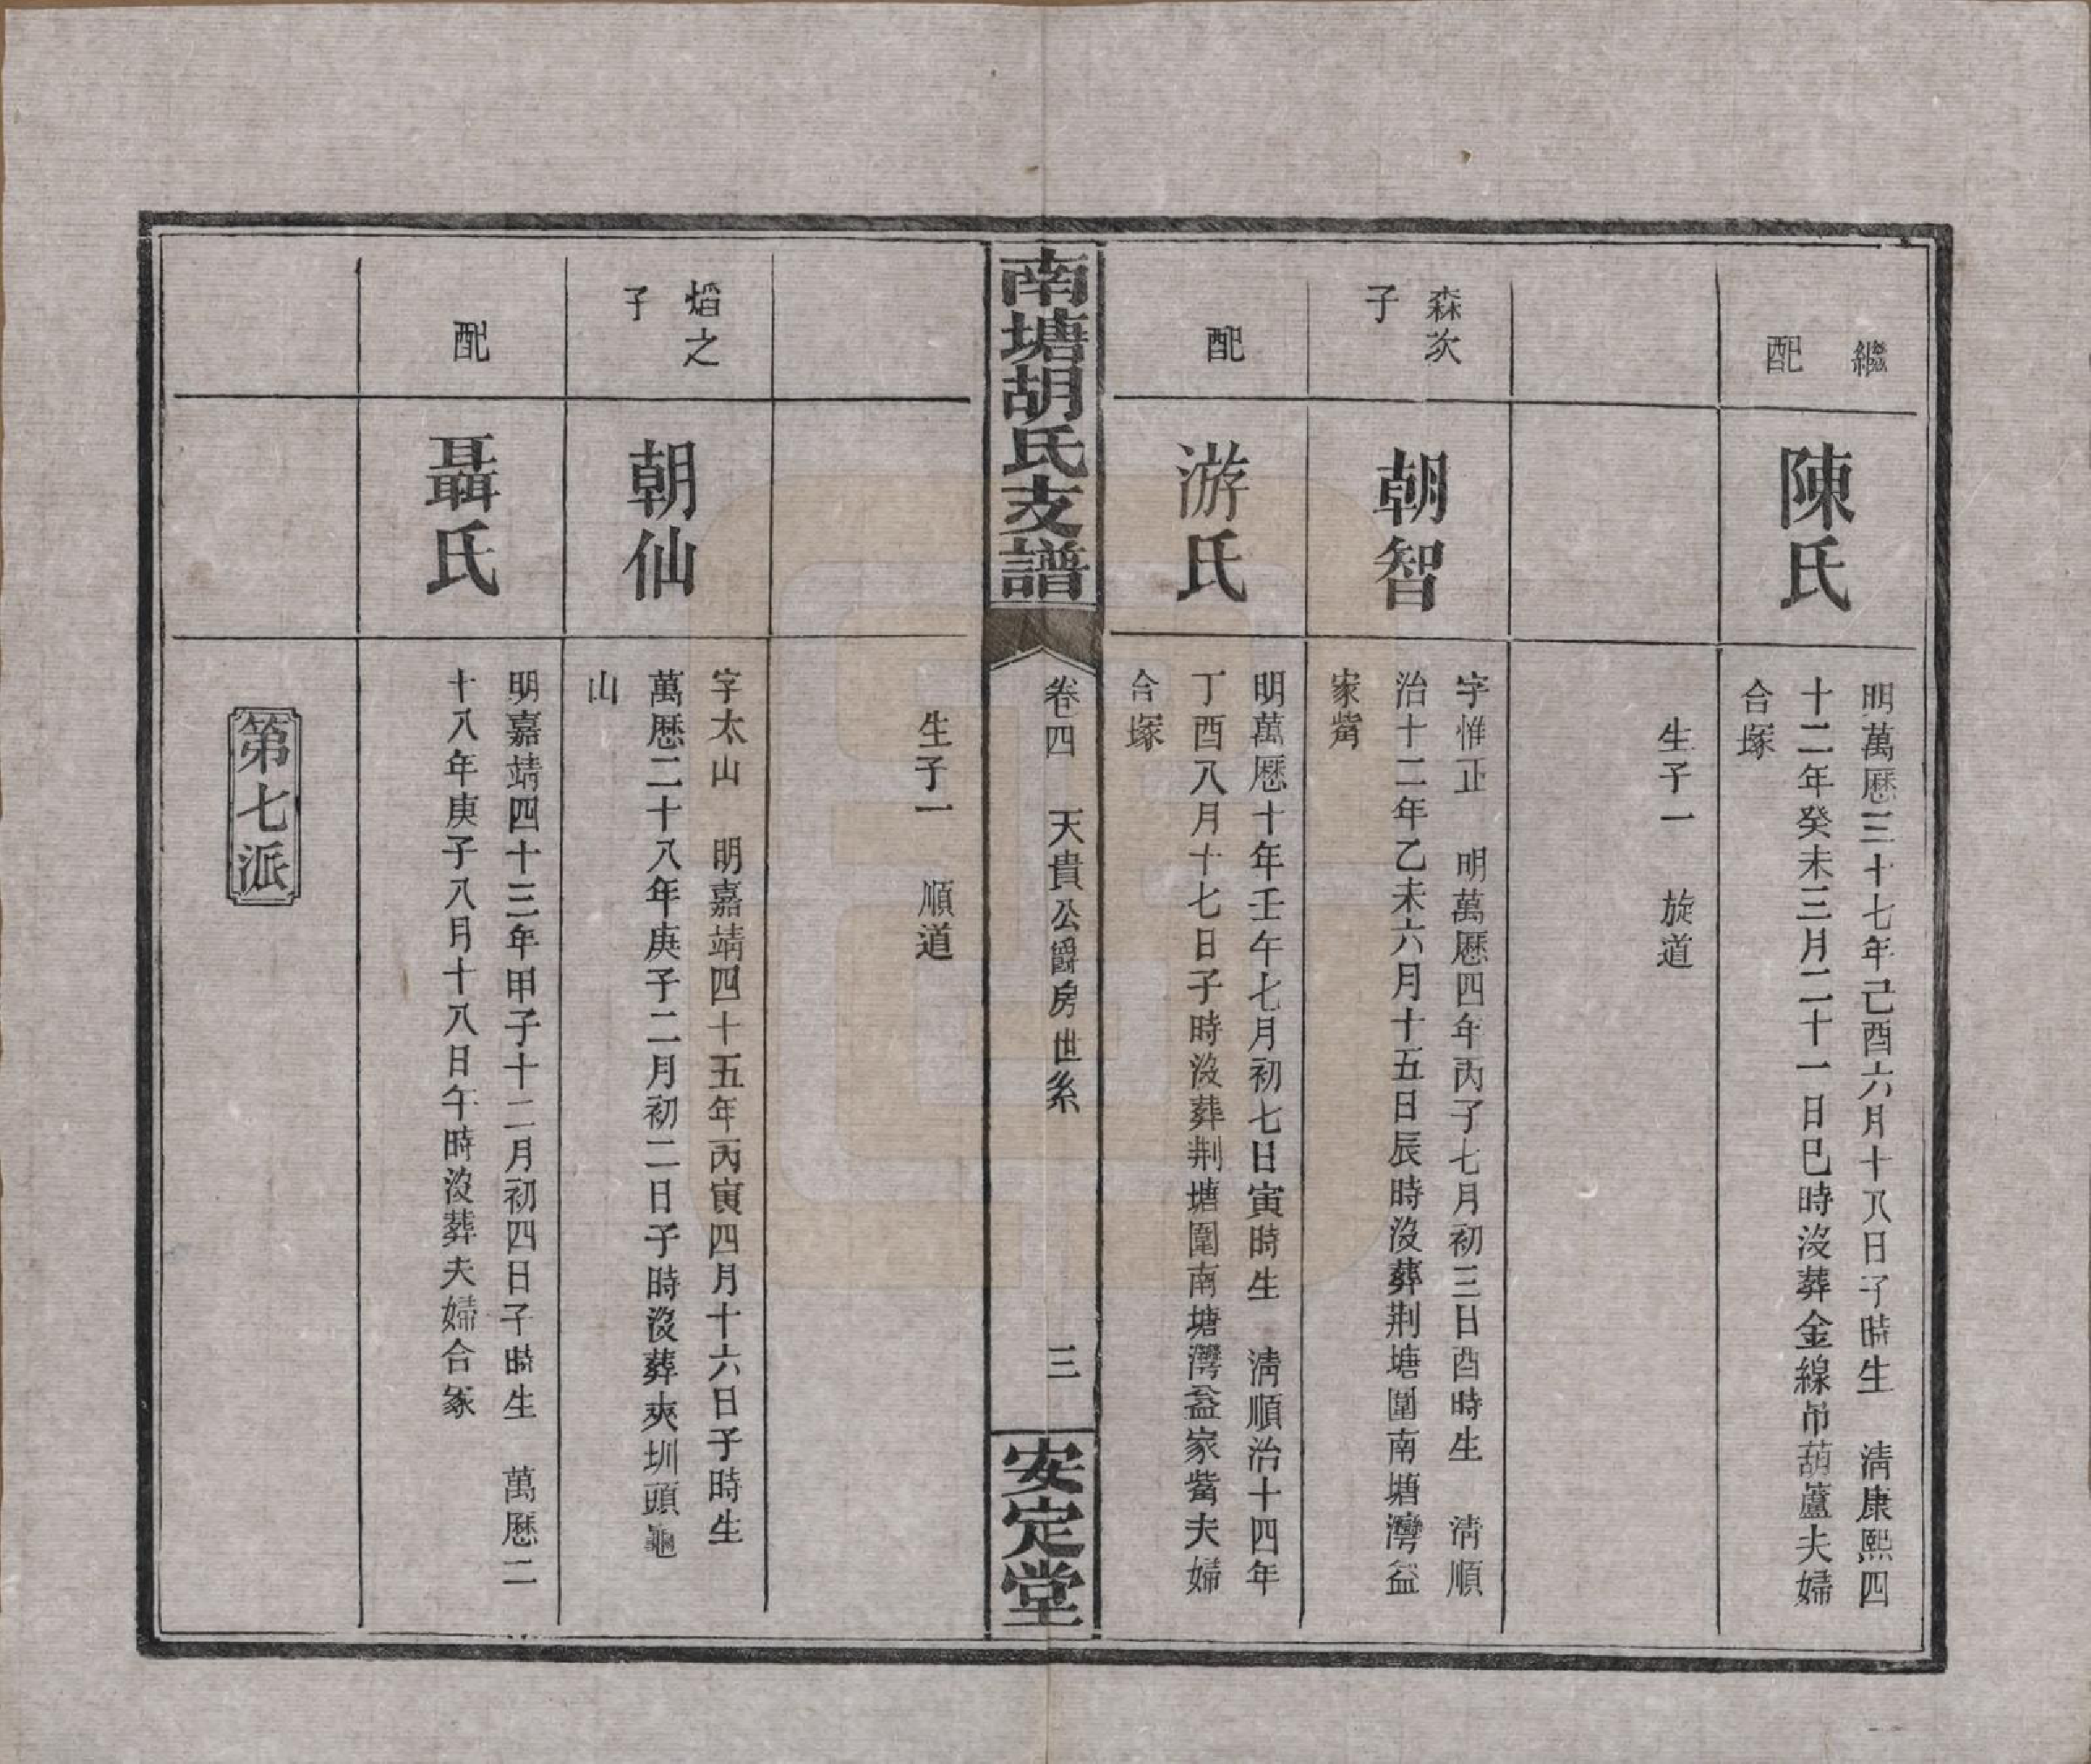 繼配
陳氏
明萬曆三十七年己酉六月十八日子時生　清康熙四
十二年癸未三月二十一日巳時沒葬金線吊葫蘆夫婦
合塚
生子一　旋道
森次子
朝智
字惟正　明萬曆四年丙子七月初三日酉時生　清順
治十二年乙未六月十五日辰時沒葬荆塘圍南塘灣益
家觜
配
游氏
明萬曆十年壬午七月初七日寅時生　清順治十四年
丁酉八月十七日子時沒葬荆塘圍南塘灣益家觜夫婦
合塚
南塘胡氏支譜
卷四　天貴公爵房世系
三
安定堂
生子一　順道
熖之子
朝仙
字太山　明嘉靖四十五年丙寅四月十六日子時生
萬曆二十八年庚子二月初二日子時沒葬夾圳頭龜
山
配
聶氏
明嘉靖四十三年甲子十二月初四日子時生　萬曆二
十八年庚子八月十八日午時沒葬夫婦合冢
第七派